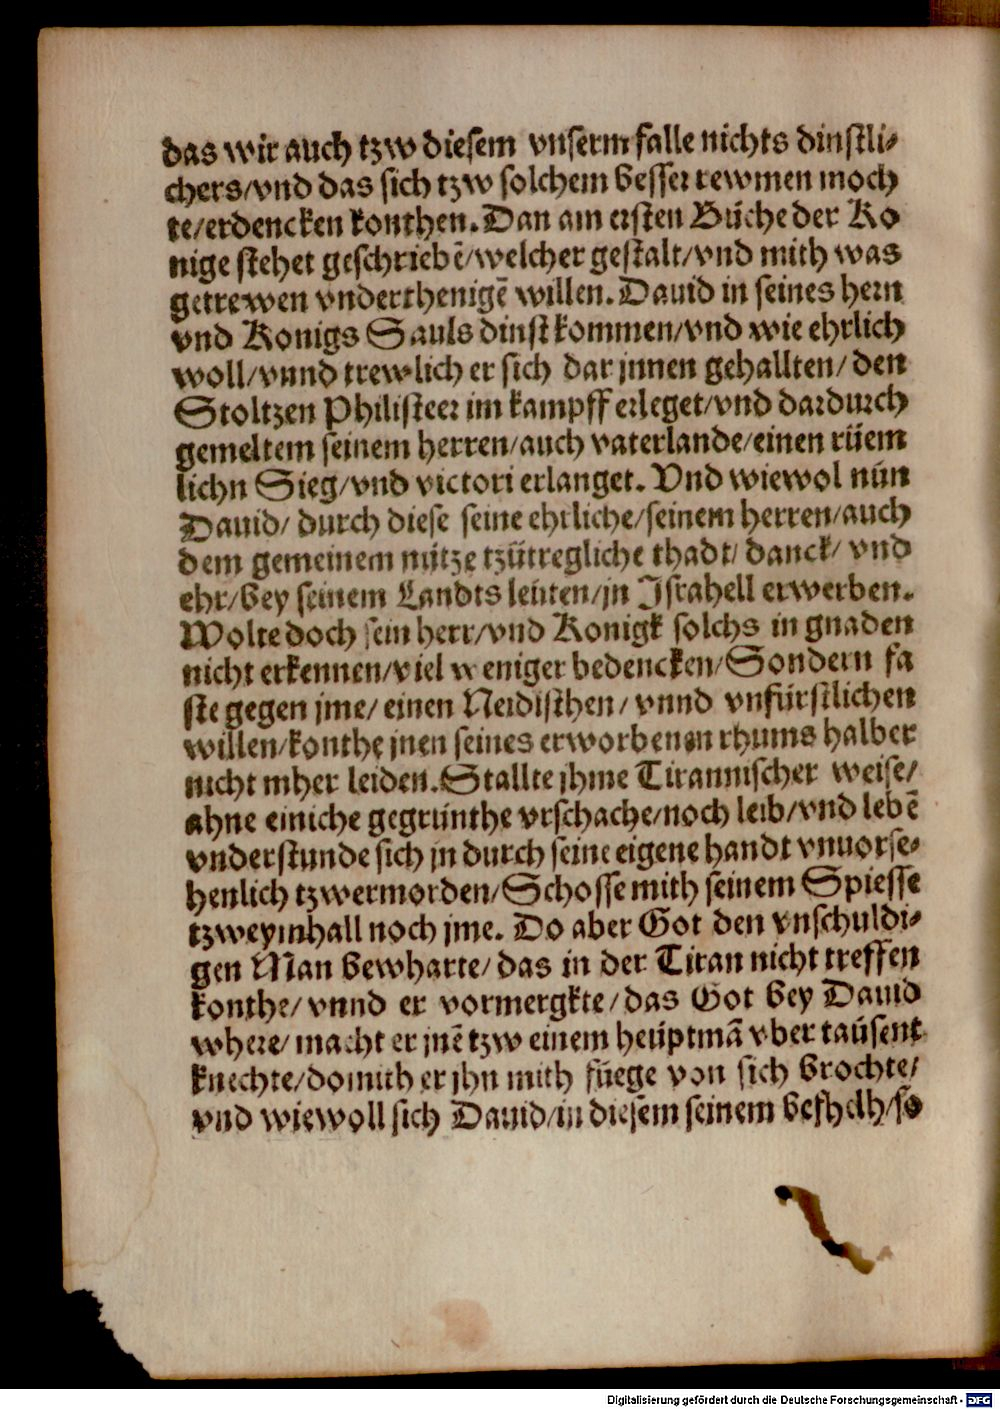 das wir auch tzw diesem vnserm falle nichts dinstli⸗
chers/vnd das sich tzw solchem besser rewmen moch
te/erdencken konthen. Dan am ersten Büche der Ko
nige stehet geschriebē/welcher gestalt/vnd mith was
getrewen vnderthenigē willen. Dauid in seines hern
vnd Konigs Sauls dinst kommen/vnd wie ehrlich
woll/vnnd trewlich er sich dar jnnen gehallten/ den
Stoltzen Philisteer im kampff erleget/vnd dardurch
gemeltem seinem herren/auch vaterlande/einen rüem
lichn Sieg/vnd victori erlanget. Vnd wiewol nün
Dauid/ durch diese seine ehrliche/seinem herren/auch
dem gemeinem nütze tzütregliche thadt/ danck/ vnd
ehr/bey seinem Landts leüten/jn Israhell erwerben.
Wolte doch sein herr/vnd Konigk solchs in gnaden
nicht erkennen/viel weniger bedencken/Sondern fa
ste gegen jme/ einen Neidisthen/ vnnd vnfürstlichen
willen/konthe jnen seines erworbenen rhums halber
nicht mher leiden. Stallte jhme Tirannischer weise/
ahne einiche gegrünthe vrschache/noch leib/vnd lebē
vnderstunde sich jn durch seine eigene handt vnuorse⸗
henlich tzwermorden/Schosse mith seinem Spiesse
tzweymhall noch jme. Do aber Got den vnschuldi⸗
gen Man bewharte/das in der Tiran nicht treffen
konthe/ vnnd er vormergkte/das Got bey Dauid
where/macht er jnē tzw einem heüptmā vber taüsent
knechte/domith er jhn mith füege von sich brochte/
vnd wiewoll sich Dauid/in diesem seinem befhelh/so
Digitalisierung gefördert durch die Deutsche Forschungsgemeinschaft - DFG